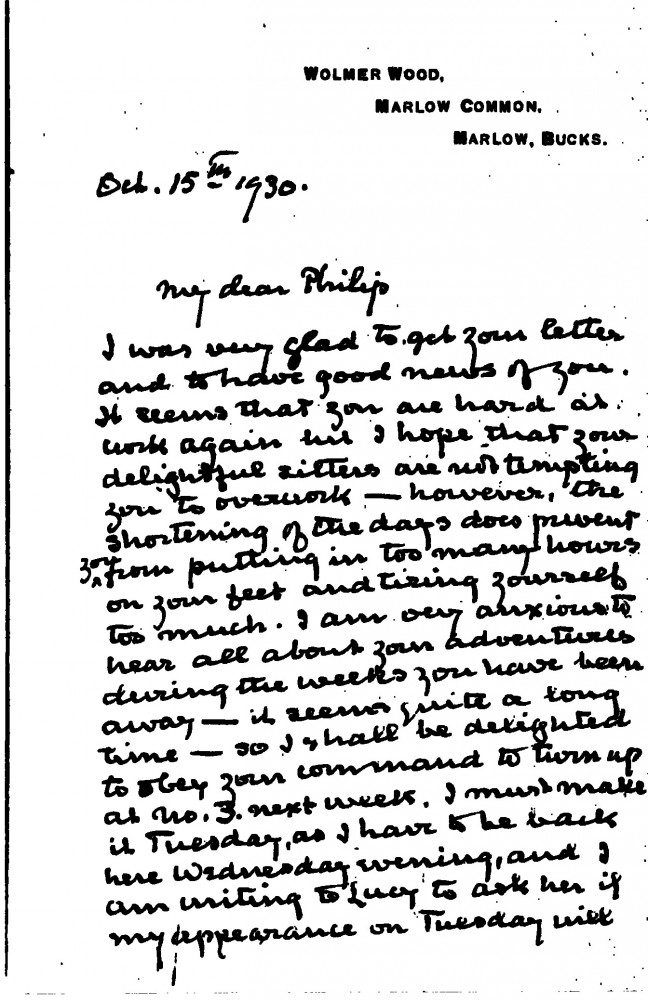 WOLMER WOOD,
MARLOW COMMON,
MARLOW, BUCKS.
Oct. 15th 1930.
My dear Philip
I was very glad to get your letter
and to have good news of you.
It seems that you are hard at
work again but I hope that your
delightful sitters are not tempting
you to overwork — however, the
shortening of the days does prevent
you from putting in too many hours
on your feet and tiring yourself
too much. I am very anxious to
hear all about your adventures
during the weeks you have been
away — it seems quite a long
time — so I shall be delighted
to obey your command to turn up
at No. 3. next week. I must make
it Tuesday, as I have to be back
here Wednesday evening, and I
am writing to Lucy to ask her if
my appearance on Tuesday will